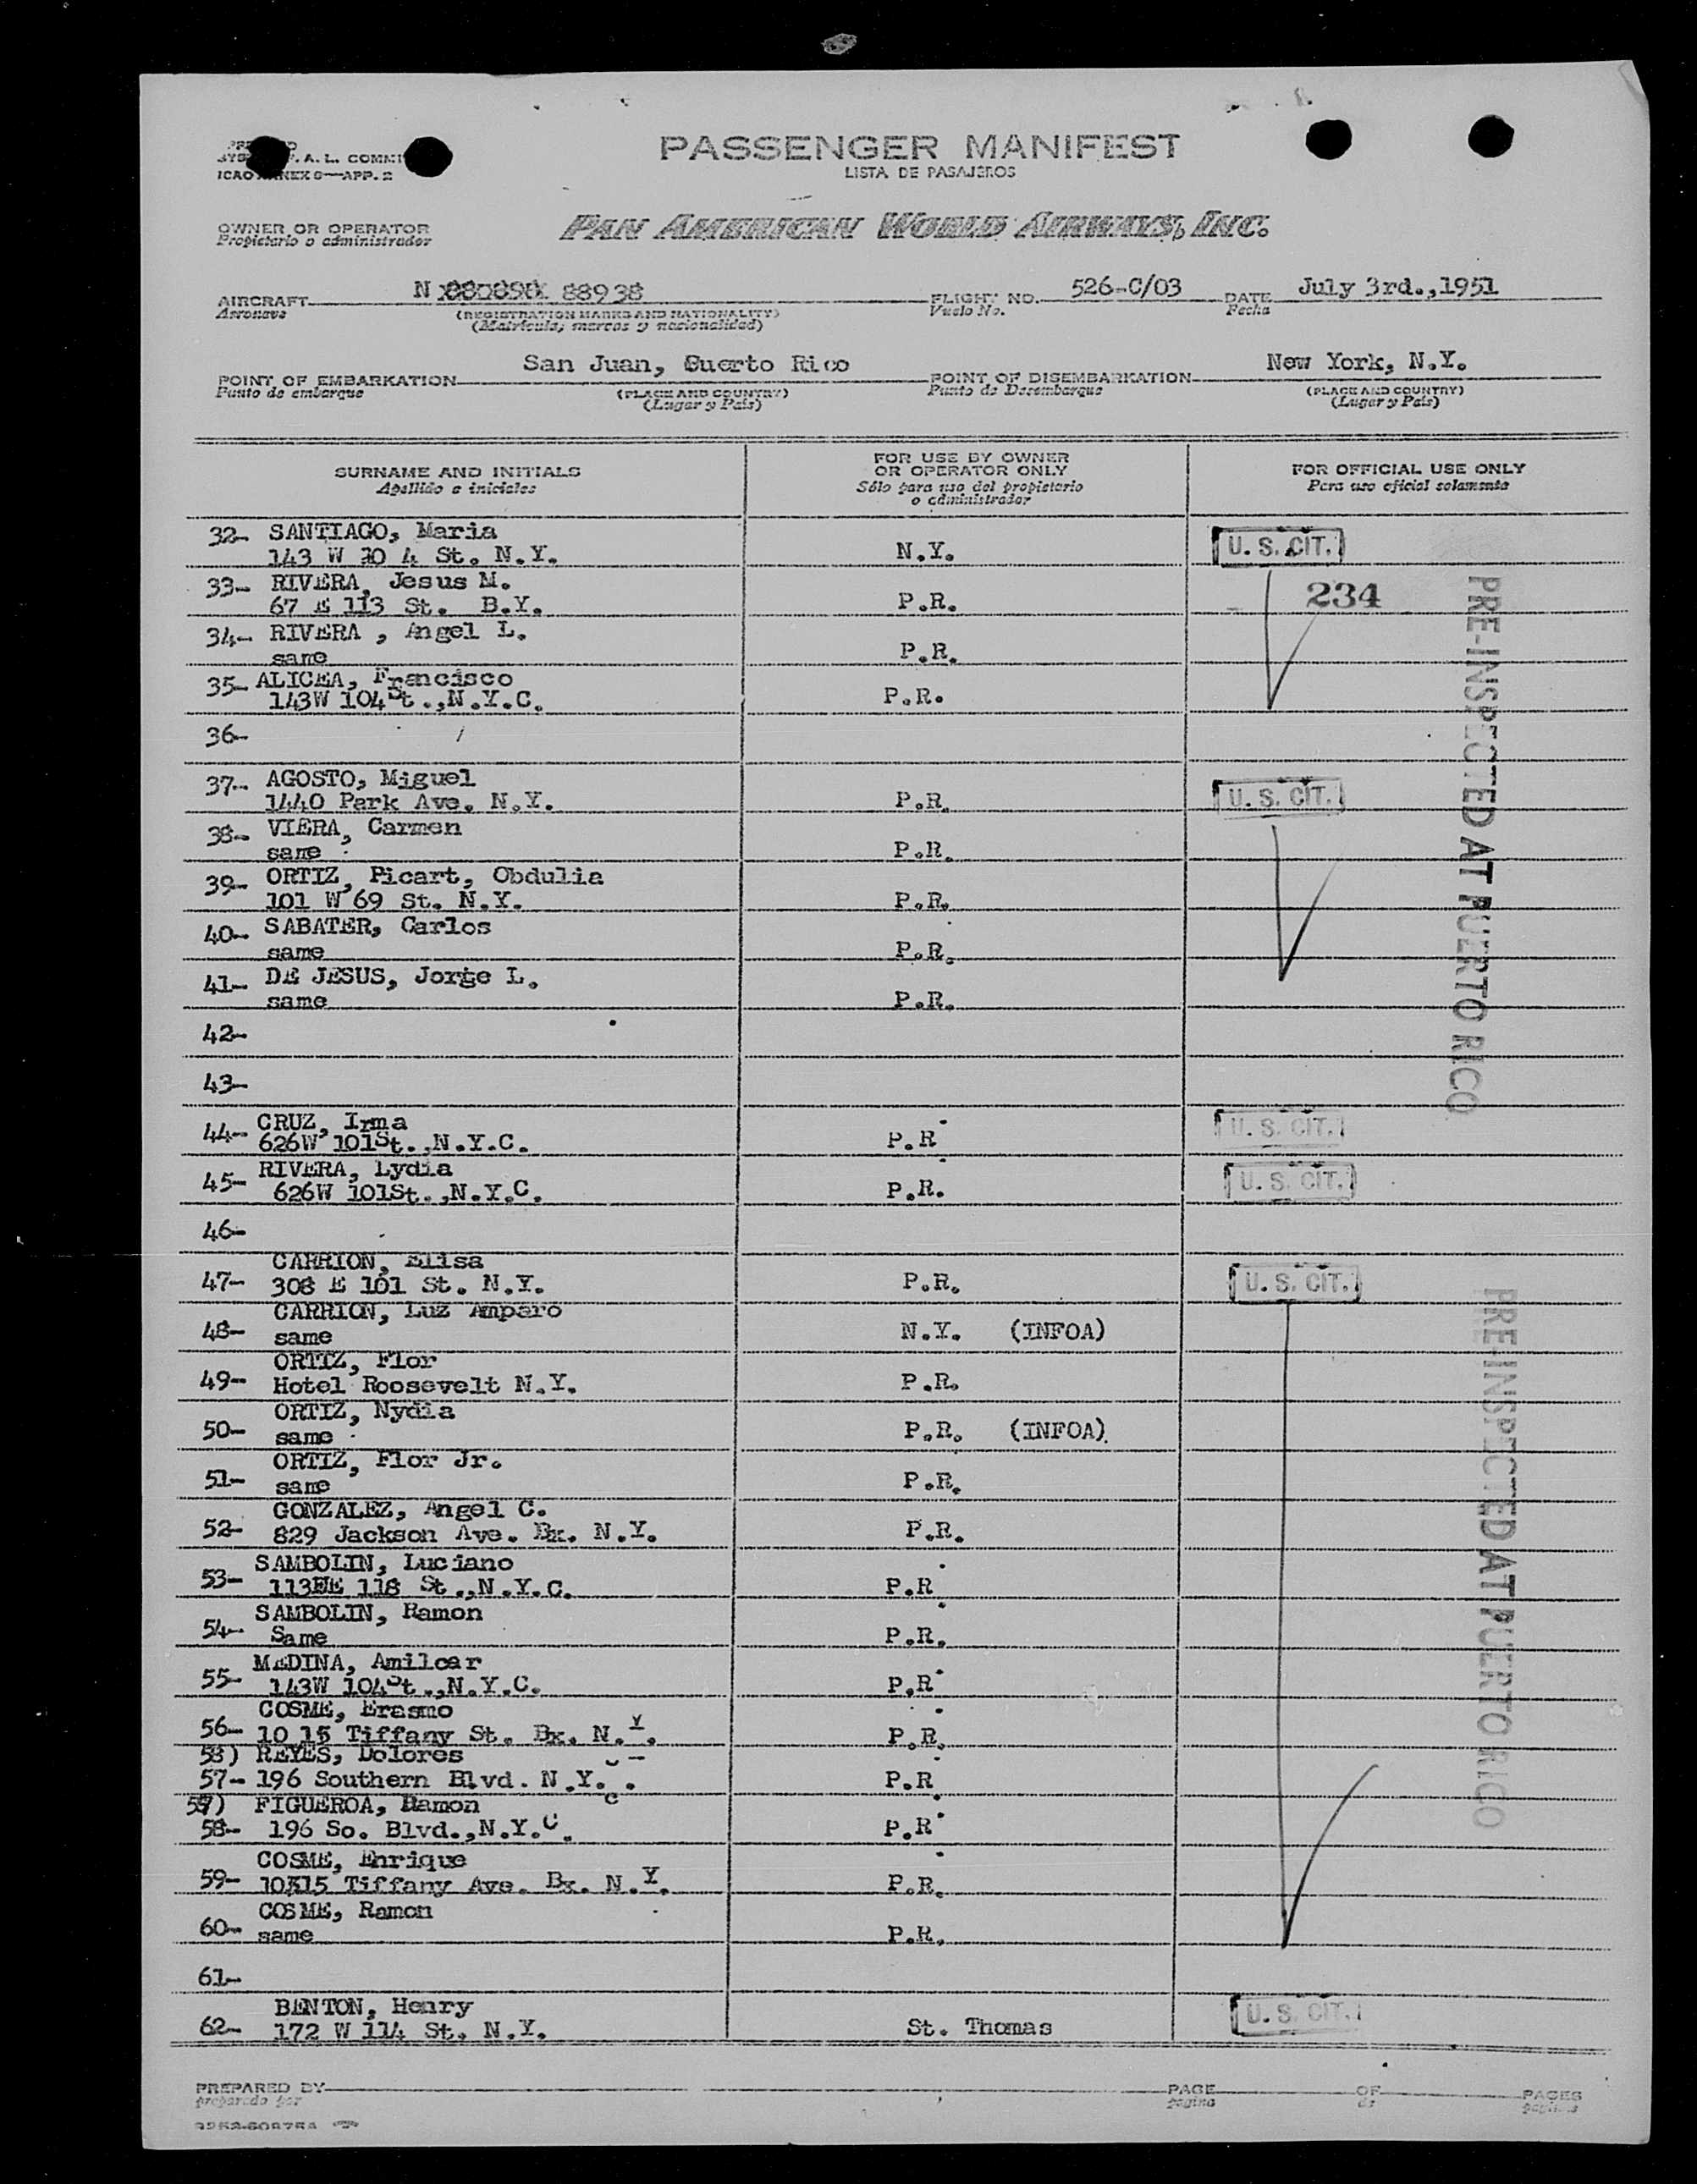 A. L. COMMI
ICAO ANNEX 9—APP. 2
PASSENGER MANIFEST
LISTA DE PASAJEROS
OWNER OR OPERATOR
Propietario o administrador
PAN AMERICAN WORLD AIRWAYS, INC.
AIRCRAFT N 88938
Aeronave
(REGISTRATION MARKS AND NATIONALITY)
(Matricula, marcas y nacionalidad)
FLIGHT NO. 526-C/03
Vuelo No.
DATE July 3rd.,1951
Fecha
POINT OF EMBARKATION San Juan, Guerto Rico
Punto de embarque
(PLACE AND COUNTRY)
(Lugar y País)
POINT OF DISEMBARKATION New York, N.Y.
Punto de Desembarque
(PLACE AND COUNTRY)
(Lugar y País)
SURNAME AND INITIALS
Apellido e iniciales
FOR USE BY OWNER
OR OPERATOR ONLY
Sólo para uso del propietario
o administrador
FOR OFFICIAL USE ONLY
Para uso oficial solamente
32- SANTIAGO, Maria
143 W 10 4 St. N.Y. N.Y. U. S. CIT.
33- RIVERA, Jesus M. 234
67 E 113 St. B.Y. P.R.
34- RIVERA , Angel L.
same P.R.
35- ALICEA, Francisco
143W 104St.,N.Y.C. P.R.
36-
37- AGOSTO, Miguel
1440 Park Ave. N.Y. P.R. U. S. CIT.
38- VIERA, Carmen
same P.R.
39- ORTIZ, Picart, Obdulia
101 W 69 St. N.Y. P.R.
40- SABATER, Carlos
same P.R.
41- DE JESUS, Jorge L.
same P.R.
PRE-INSPECTED AT PUERTO RICO
42-
43-
44- CRUZ, Irma
626W 101St.,N.Y.C. P.R. U. S. CIT.
45- RIVERA, Lydia
626W 101St.,N.Y.C. P.R. U. S. CIT.
46-
CARRION, Elisa
47- 308 E 101 St. N.Y. P.R. U. S. CIT.
CARRION, Luz Amparo
48- same N.Y. (INFOA)
ORTIZ, Flor
49- Hotel Roosevelt N.Y. P.R.
ORTIZ, Nydia
50- same P.R. (INFOA)
ORTIZ, Flor Jr.
51- same P.R.
GONZALEZ, Angel C.
52- 829 Jackson Ave. Bx. N.Y. P.R.
SAMBOLIN, Luciano
53- 118 St.,N.Y.C. P.R.
SAMBOLIN, Ramon
54- Same P.R.
MEDINA, Amilcar
55- 143W 104St.,N.Y.C. P.R.
COSME, Erasmo
56- 10 15 Tiffany St. Bx. N.Y. P.R.
REYES, Dolores
57- 196 Southern Blvd. N.Y. P.R.
FIGUEROA, Ramon
58- 196 So. Blvd.,N.Y.C. P.R.
COSME, Enrique
59- Tiffany Ave. Bx. N.Y. P.R.
COSME, Ramon
60- same P.R.
PRE-INSPECTED AT PUERTO RICO
61-
BENTON, Henry
62- 172 W 114 St. N.Y. St. Thomas U. S. CIT.
PREPARED BY
preparado por
PAGE
pagina
OF
de
PAGES
paginas